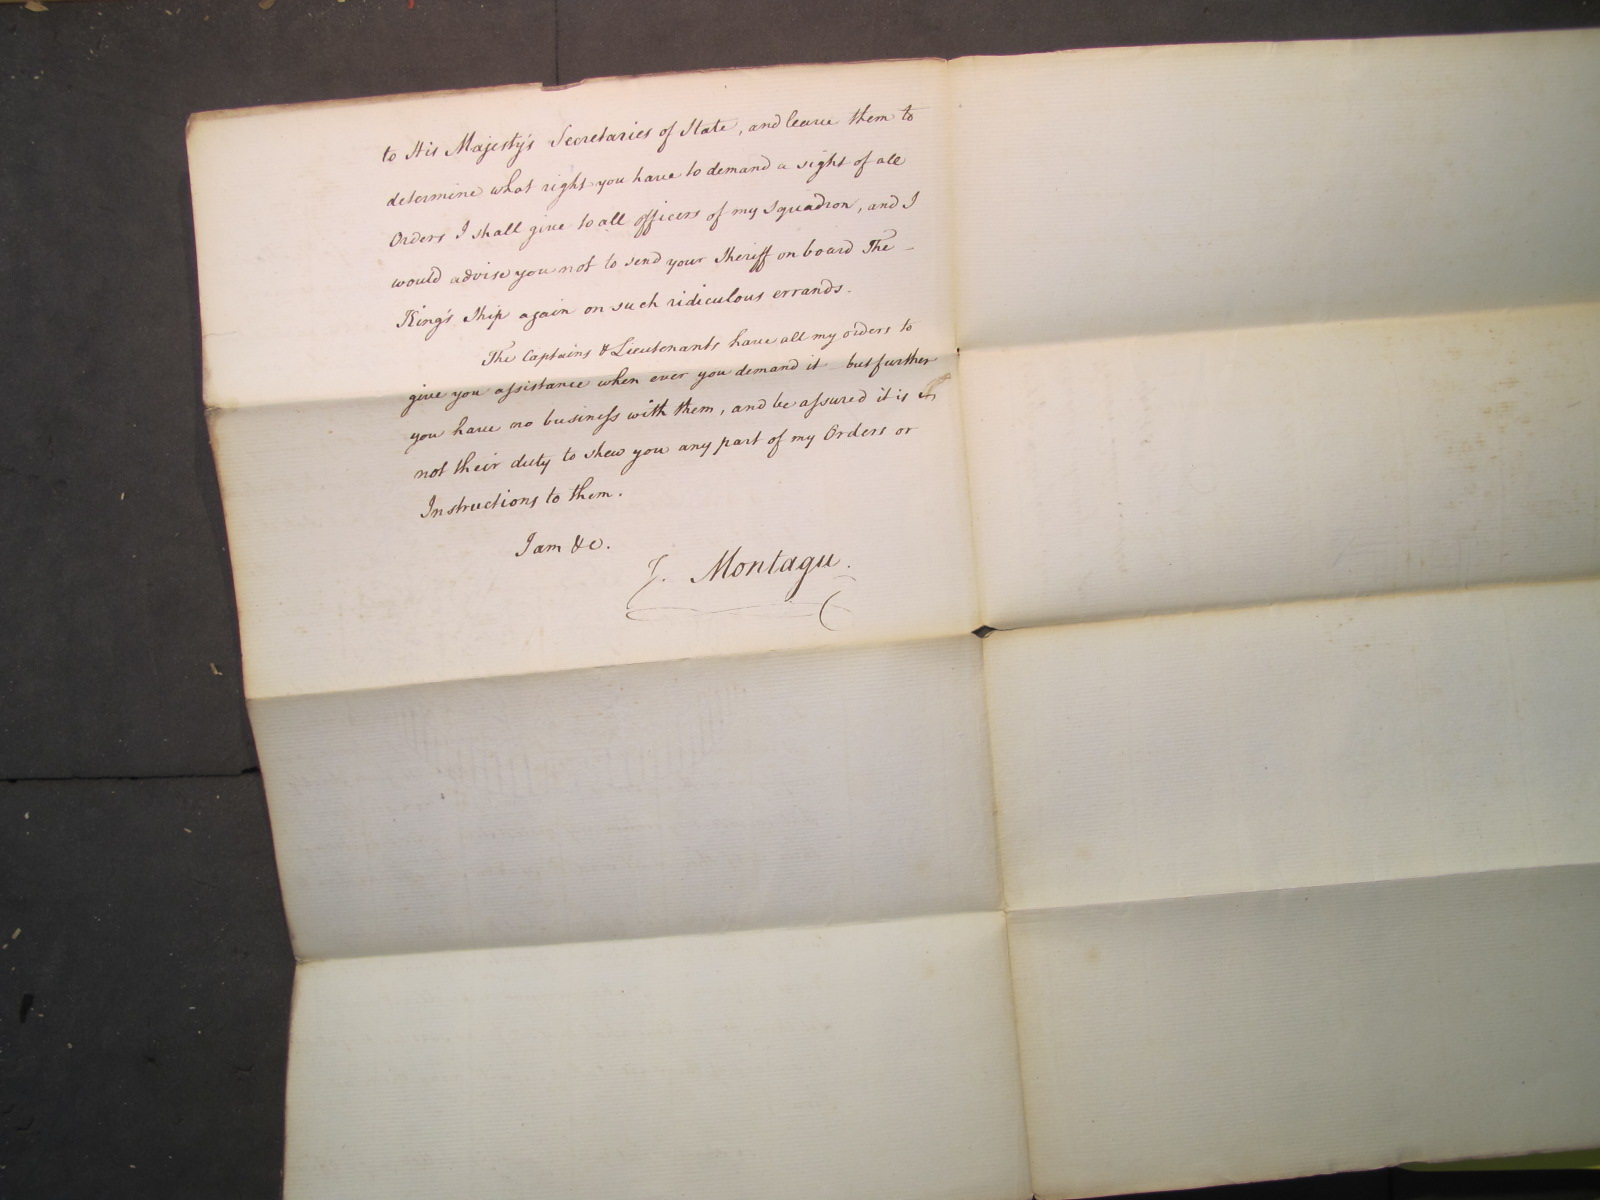 to His Majesty's Secretaries of State, and leave them to
determine what right you have to demand a sight of all
Orders I shall give to all officers of my Squadron, and I
would advise you not to send your Sheriff on board The
King's Ship again on such ridiculous errands.
The Captains & Lieutenants have all my orders to
give you assistance when ever you demand it but further
you have no business with them, and be assured it is
not their duty to shew you any part of my Orders or
Instructions to them.
I am &c.
J. Montagu.